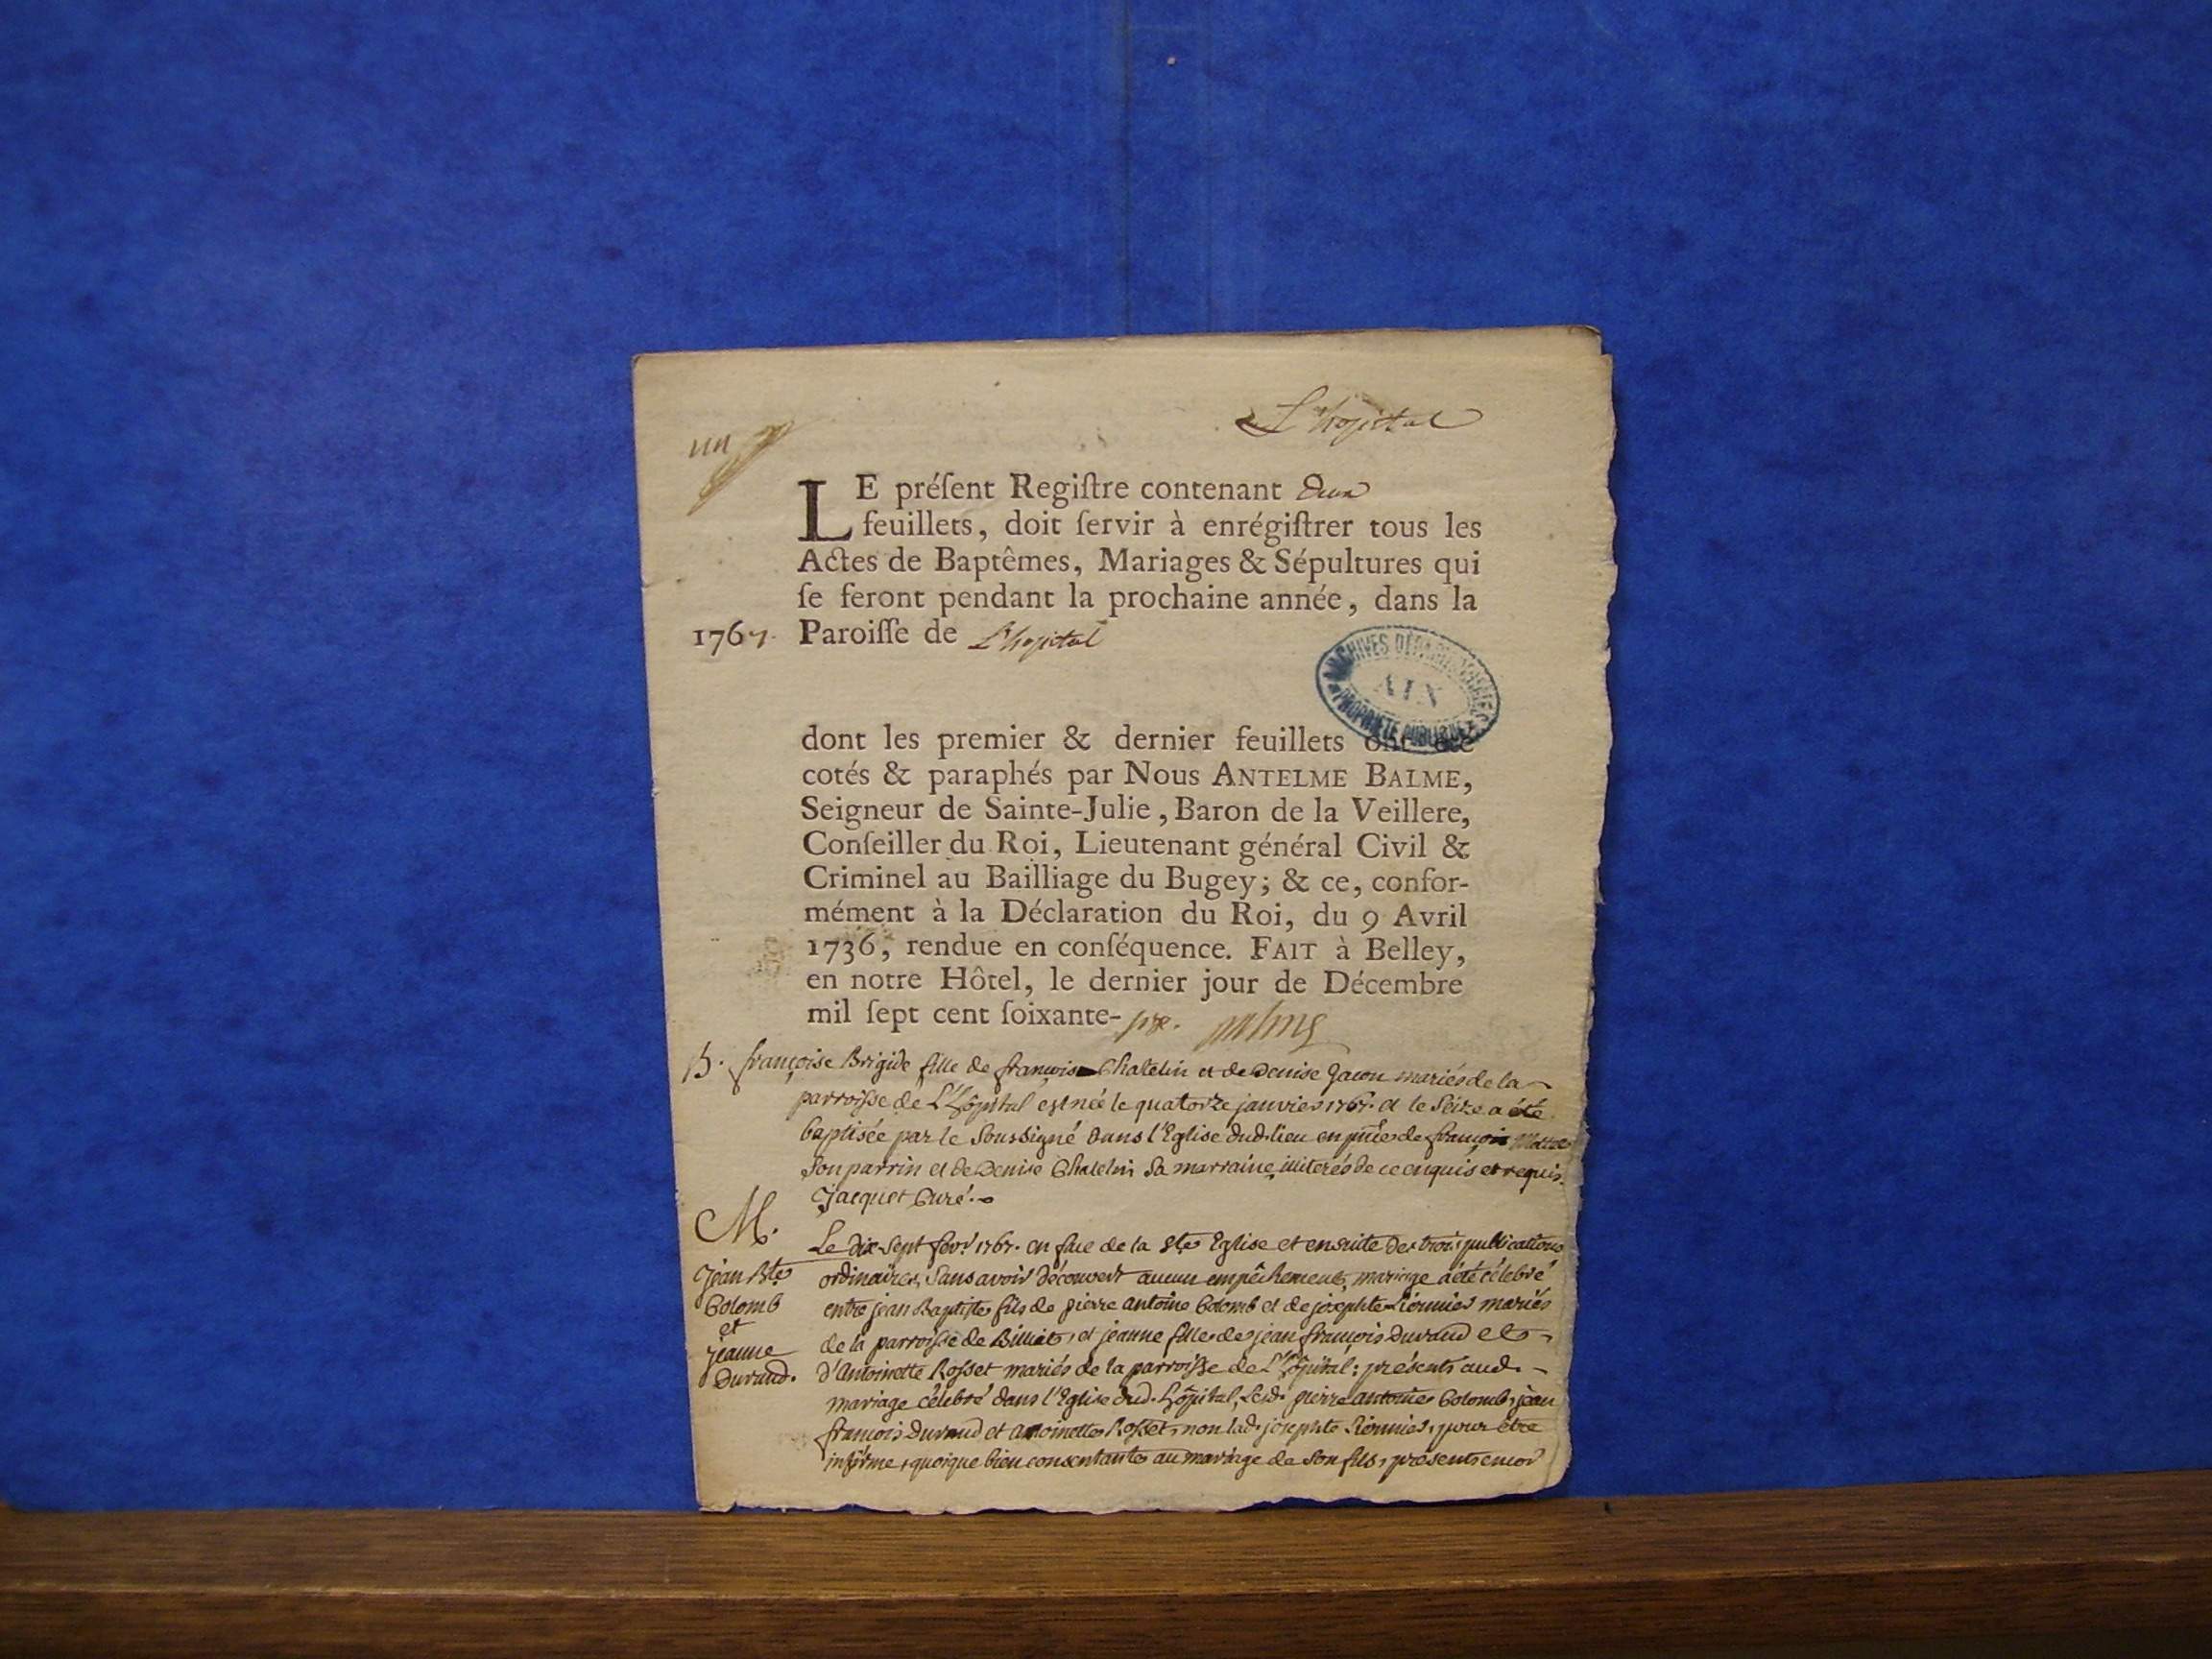 L'hopital
un
LE préſent Regiſtre contenant deux
feuillets, doit ſervir à enrégiſtrer tous les
Actes de Baptêmes, Mariages & Sépultures qui
ſe feront pendant la prochaine année, dans la
1767. Paroiſſe de L'hopital
ARCHIVES DÉPARTEMENTALES
AIN
PROPRIÉTÉ PUBLIQUE
dont les premier & dernier feuillets ont été
cotés & paraphés par Nous ANTELME BALME,
Seigneur de Sainte-Julie, Baron de la Veillere,
Conſeiller du Roi, Lieutenant général Civil &
Criminel au Bailliage du Bugey; & ce, confor-
mément à la Déclaration du Roi, du 9 Avril
1736, rendue en conſéquence. FAIT à Belley,
en notre Hôtel, le dernier jour de Décembre
mil ſept cent ſoixante-six. Balme
B. françoise Brigide fille de françois Chatelin et de Denise Gacon mariés de la
parroisse de L'hôpital est née le quatorze janvier 1767. et le Seize a été
baptisée par le Soussigné dans l'Eglise dud. lieu en pñce de françois
Son parrin et de Denise Chatelin Sa marraine, illiterés de ce enquis et requis.
Jacquet Curé.
M.
Le dix Sept fevr. 1767. en face de la Ste Eglise et ensuite des trois publications
Jean Bte ordinaires, Sans avoir découvert aucun empêchement, mariage a été célebré
Colomb entre jean Baptiste fils de pierre antoine Colomb et de josephte mariés
et de la parroisse de Billiat, et jeanne fille de jean françois Durand et
jeanne d'Antoinette Rosset mariés de la parroisse de L'hôpital: présents aud.
Durand. mariage célebré dans l'Eglise dud. hôpital, Led. pierre antoine Colomb, jean
françois Durand et antoinette Rosset, non lad. josephte pour être
infirme, quoique bien consentante au mariage de Son fils, présents encor